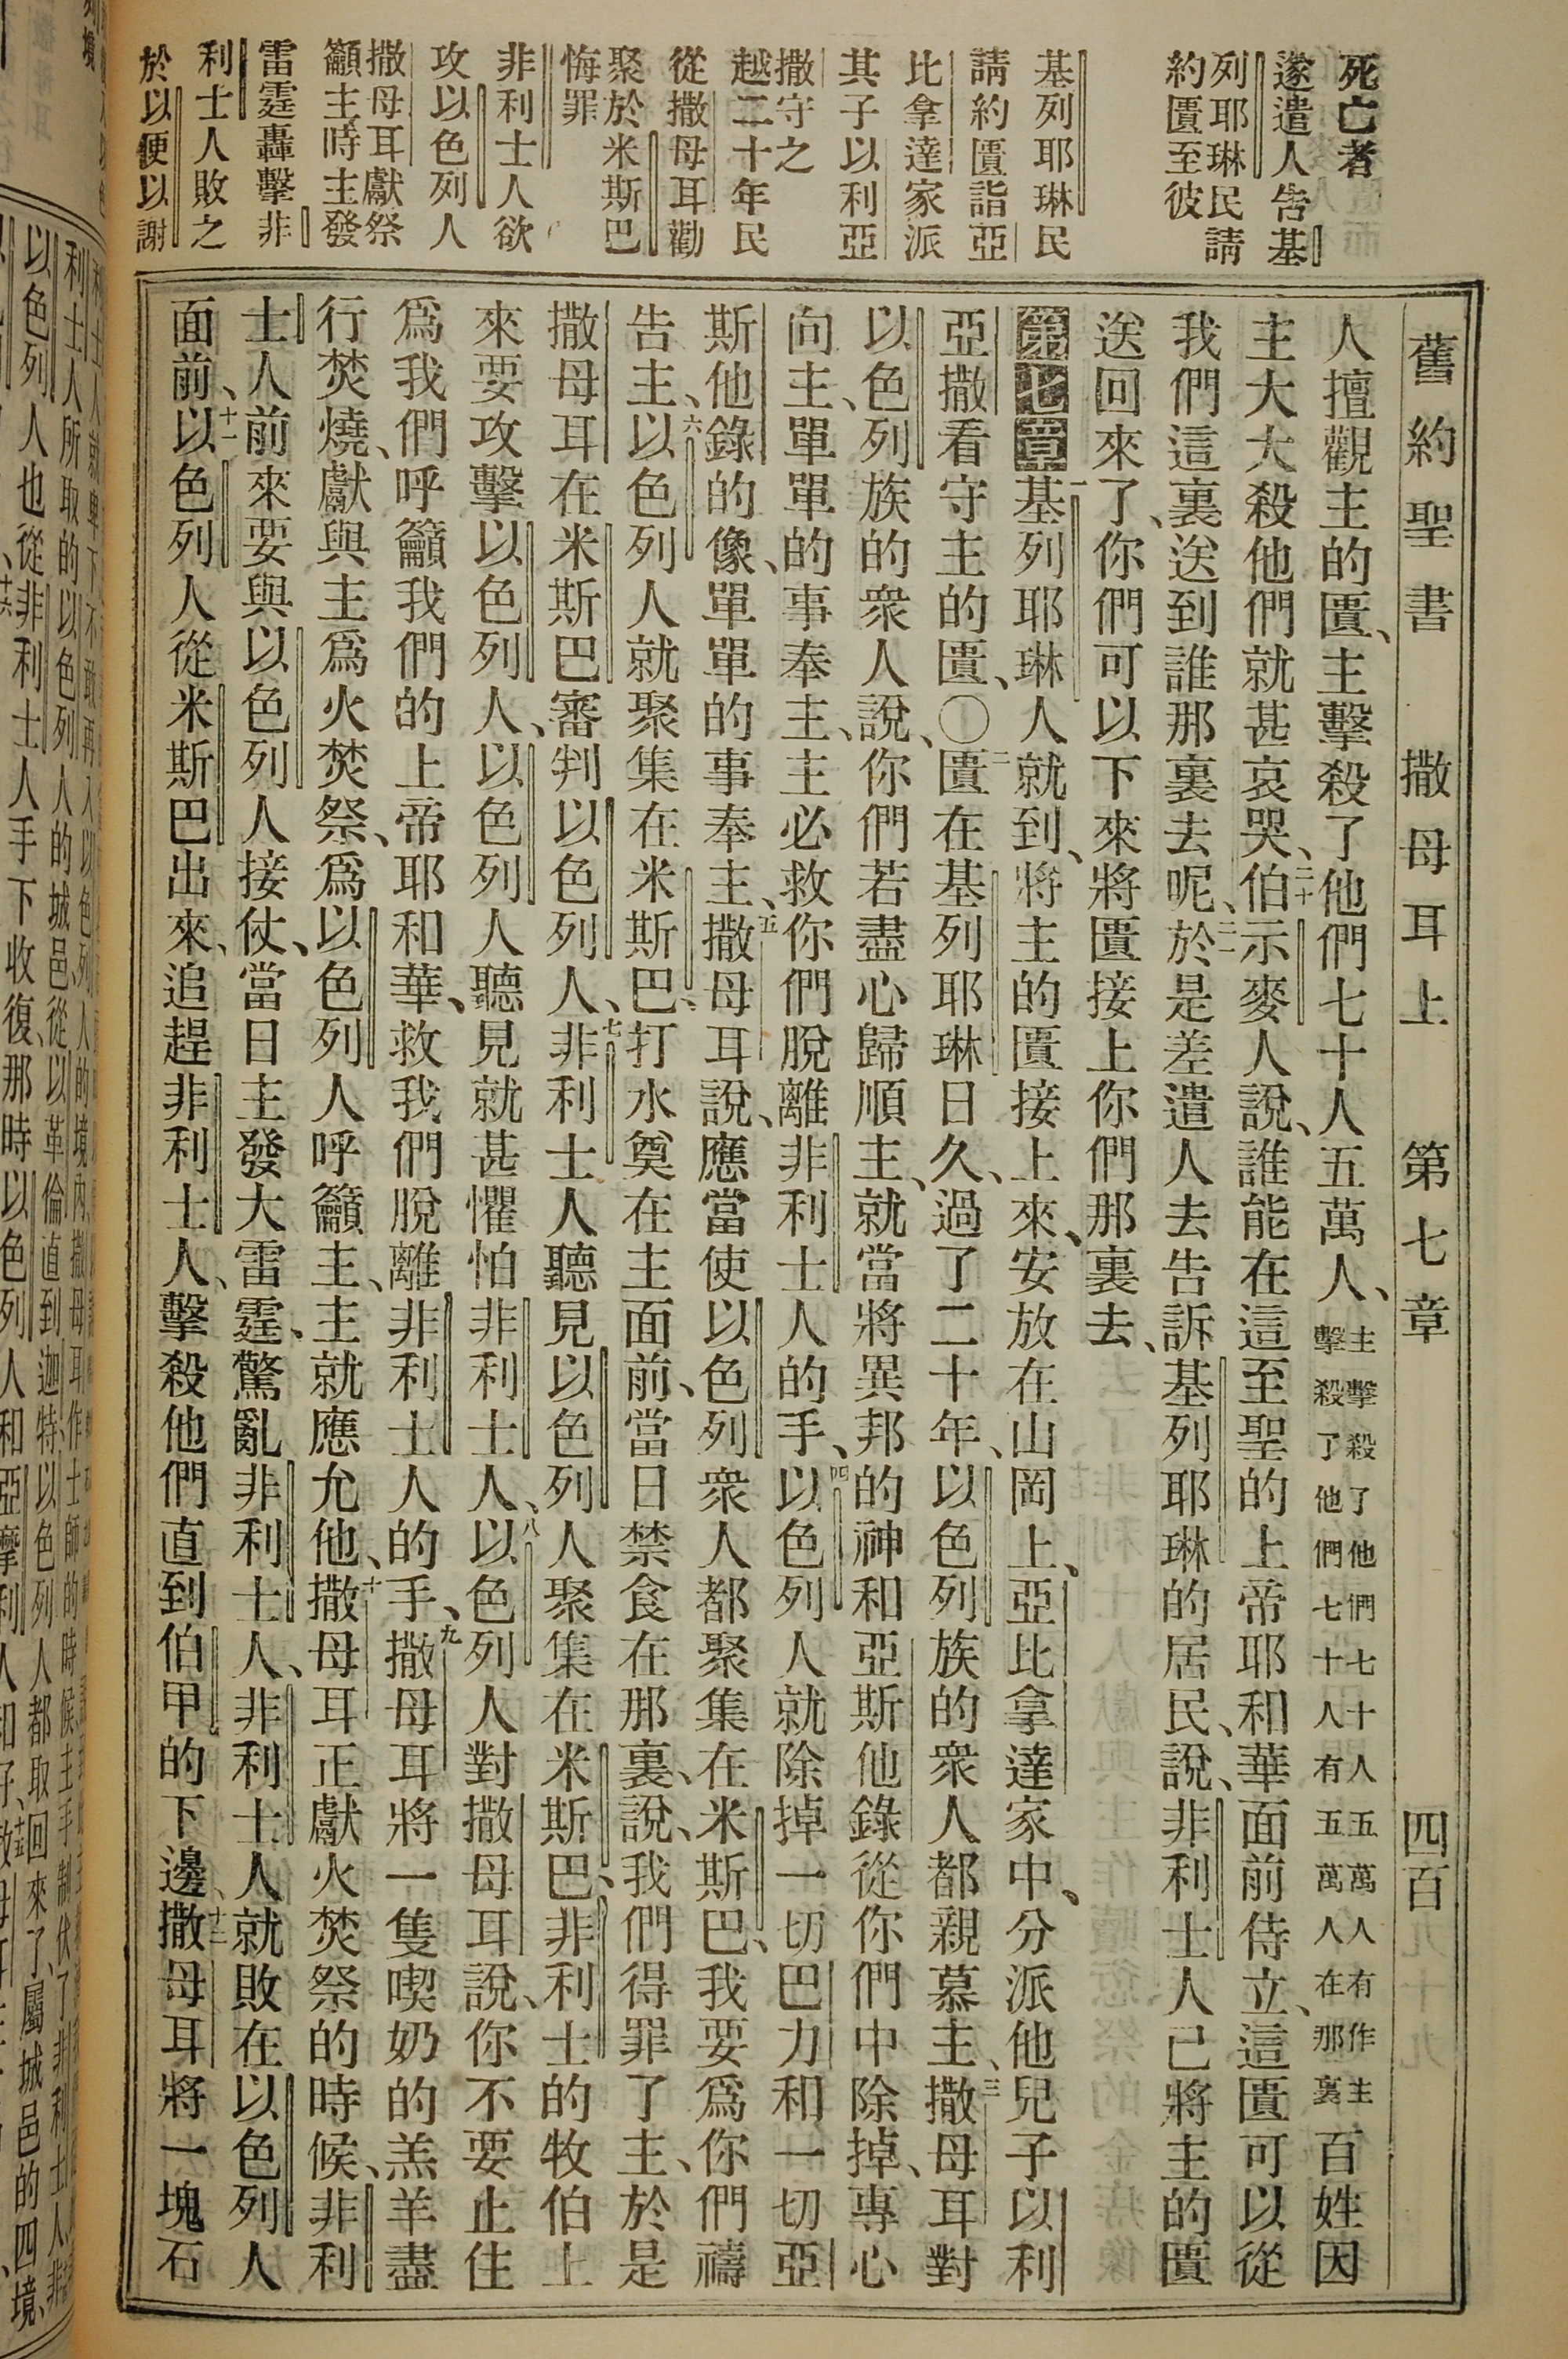 舊約聖書 撒母耳上 第七章 四百
死亡者
遂遣人告基
列耶琳民請
約匱至彼
基列耶琳民
請約匱詣亞
比拿達家派
其子以利亞
撒守之
越二十年民
從撒母耳勸
聚於米斯巴
悔罪
非利士人欲
攻以色列人
撒母耳獻祭
籲主時主發
雷霆轟擊非
利士人敗之
於以便以謝
人擅觀主的匱、主擊殺了他們七十人五萬人、主擊殺了他們七十人五萬人有作主擊殺了他們七十人有五萬人在那裏百姓因
主大大殺他們就甚哀哭、二十伯示麥人說、誰能在這至聖的上帝耶和華面前侍立、這匱可以從
我們這裏送到誰那裏去呢、二一於是差遣人去告訴基列耶琳的居民、說、非利士人已將主的匱
送回來了、你們可以下來將匱接上你們那裏去、
第七章 一基列耶琳人就到、將主的匱接上來、安放在山岡上、亞比拿達家中、分派他兒子以利
亞撒看守主的匱、〇二匱在基列耶琳日久、過了二十年、以色列族的衆人都親慕主、三撒母耳對
以色列族的衆人說、你們若盡心歸順主、就當將異邦的神和亞斯他錄從你們中除掉、專心
向主、單單的事奉主、主必救你們脫離非利士人的手、四以色列人就除掉一切巴力和一切亞
斯他錄的像、單單的事奉主、五撒母耳說、應當使以色列衆人都聚集在米斯巴、我要爲你們禱
告主、六以色列人就聚集在米斯巴、打水奠在主面前、當日禁食在那裏、說、我們得罪了主、於是
撒母耳在米斯巴審判以色列人、七非利士人聽見以色列人聚集在米斯巴、非利士的牧伯上
來要攻擊以色列人、以色列人聽見就甚懼怕非利士人、八以色列人對撒母耳說、你不要止住
爲我們呼籲我們的上帝耶和華、救我們脫離非利士人的手、九撒母耳將一隻喫奶的羔羊盡
行焚燒、獻與主爲火焚祭、爲以色列人呼籲主、主就應允他、十撒母耳正獻火焚祭的時候、非利
士人前來要與以色列人接仗、當日主發大雷霆、驚亂非利士人、非利士人就敗在以色列人
面前、十一以色列人從米斯巴出來、追趕非利士人、擊殺他們直到伯甲的下邊、十二撒母耳將一塊石